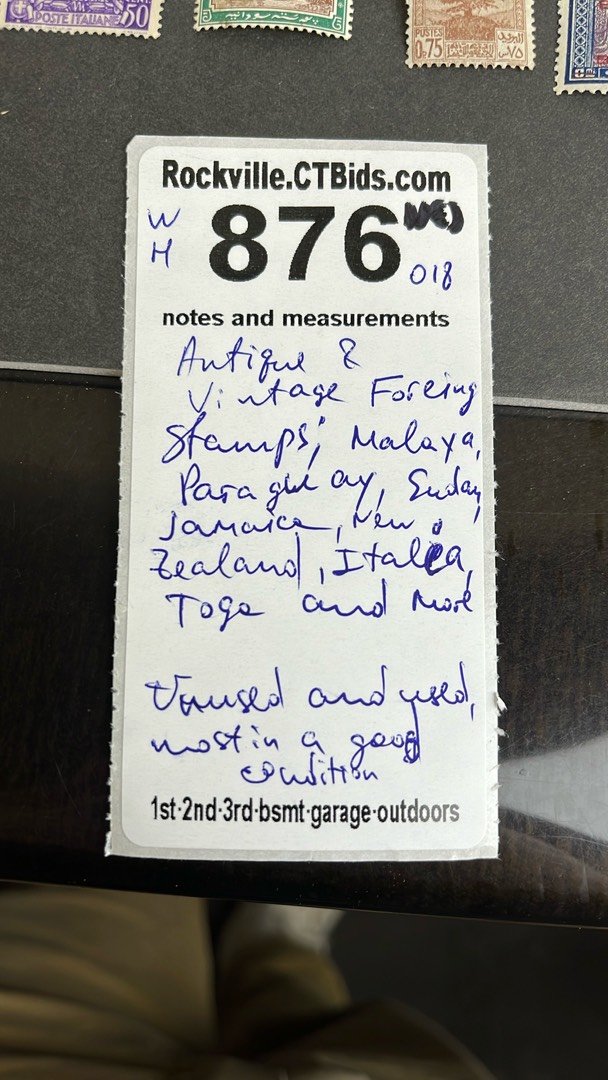 POSTE ITALIANE
50
PUSTES
0.75
Rockville.CTBids.com
W
H
876
018
notes and measurements
Antique &
Vintage Foreing
Stamps; Malaya,
Paraguay, Sudan,
Jamaica, New
Zealand, Italia,
Togo and More
Unused and used,
most in a good
condition
1st·2nd·3rd·bsmt·garage·outdoors